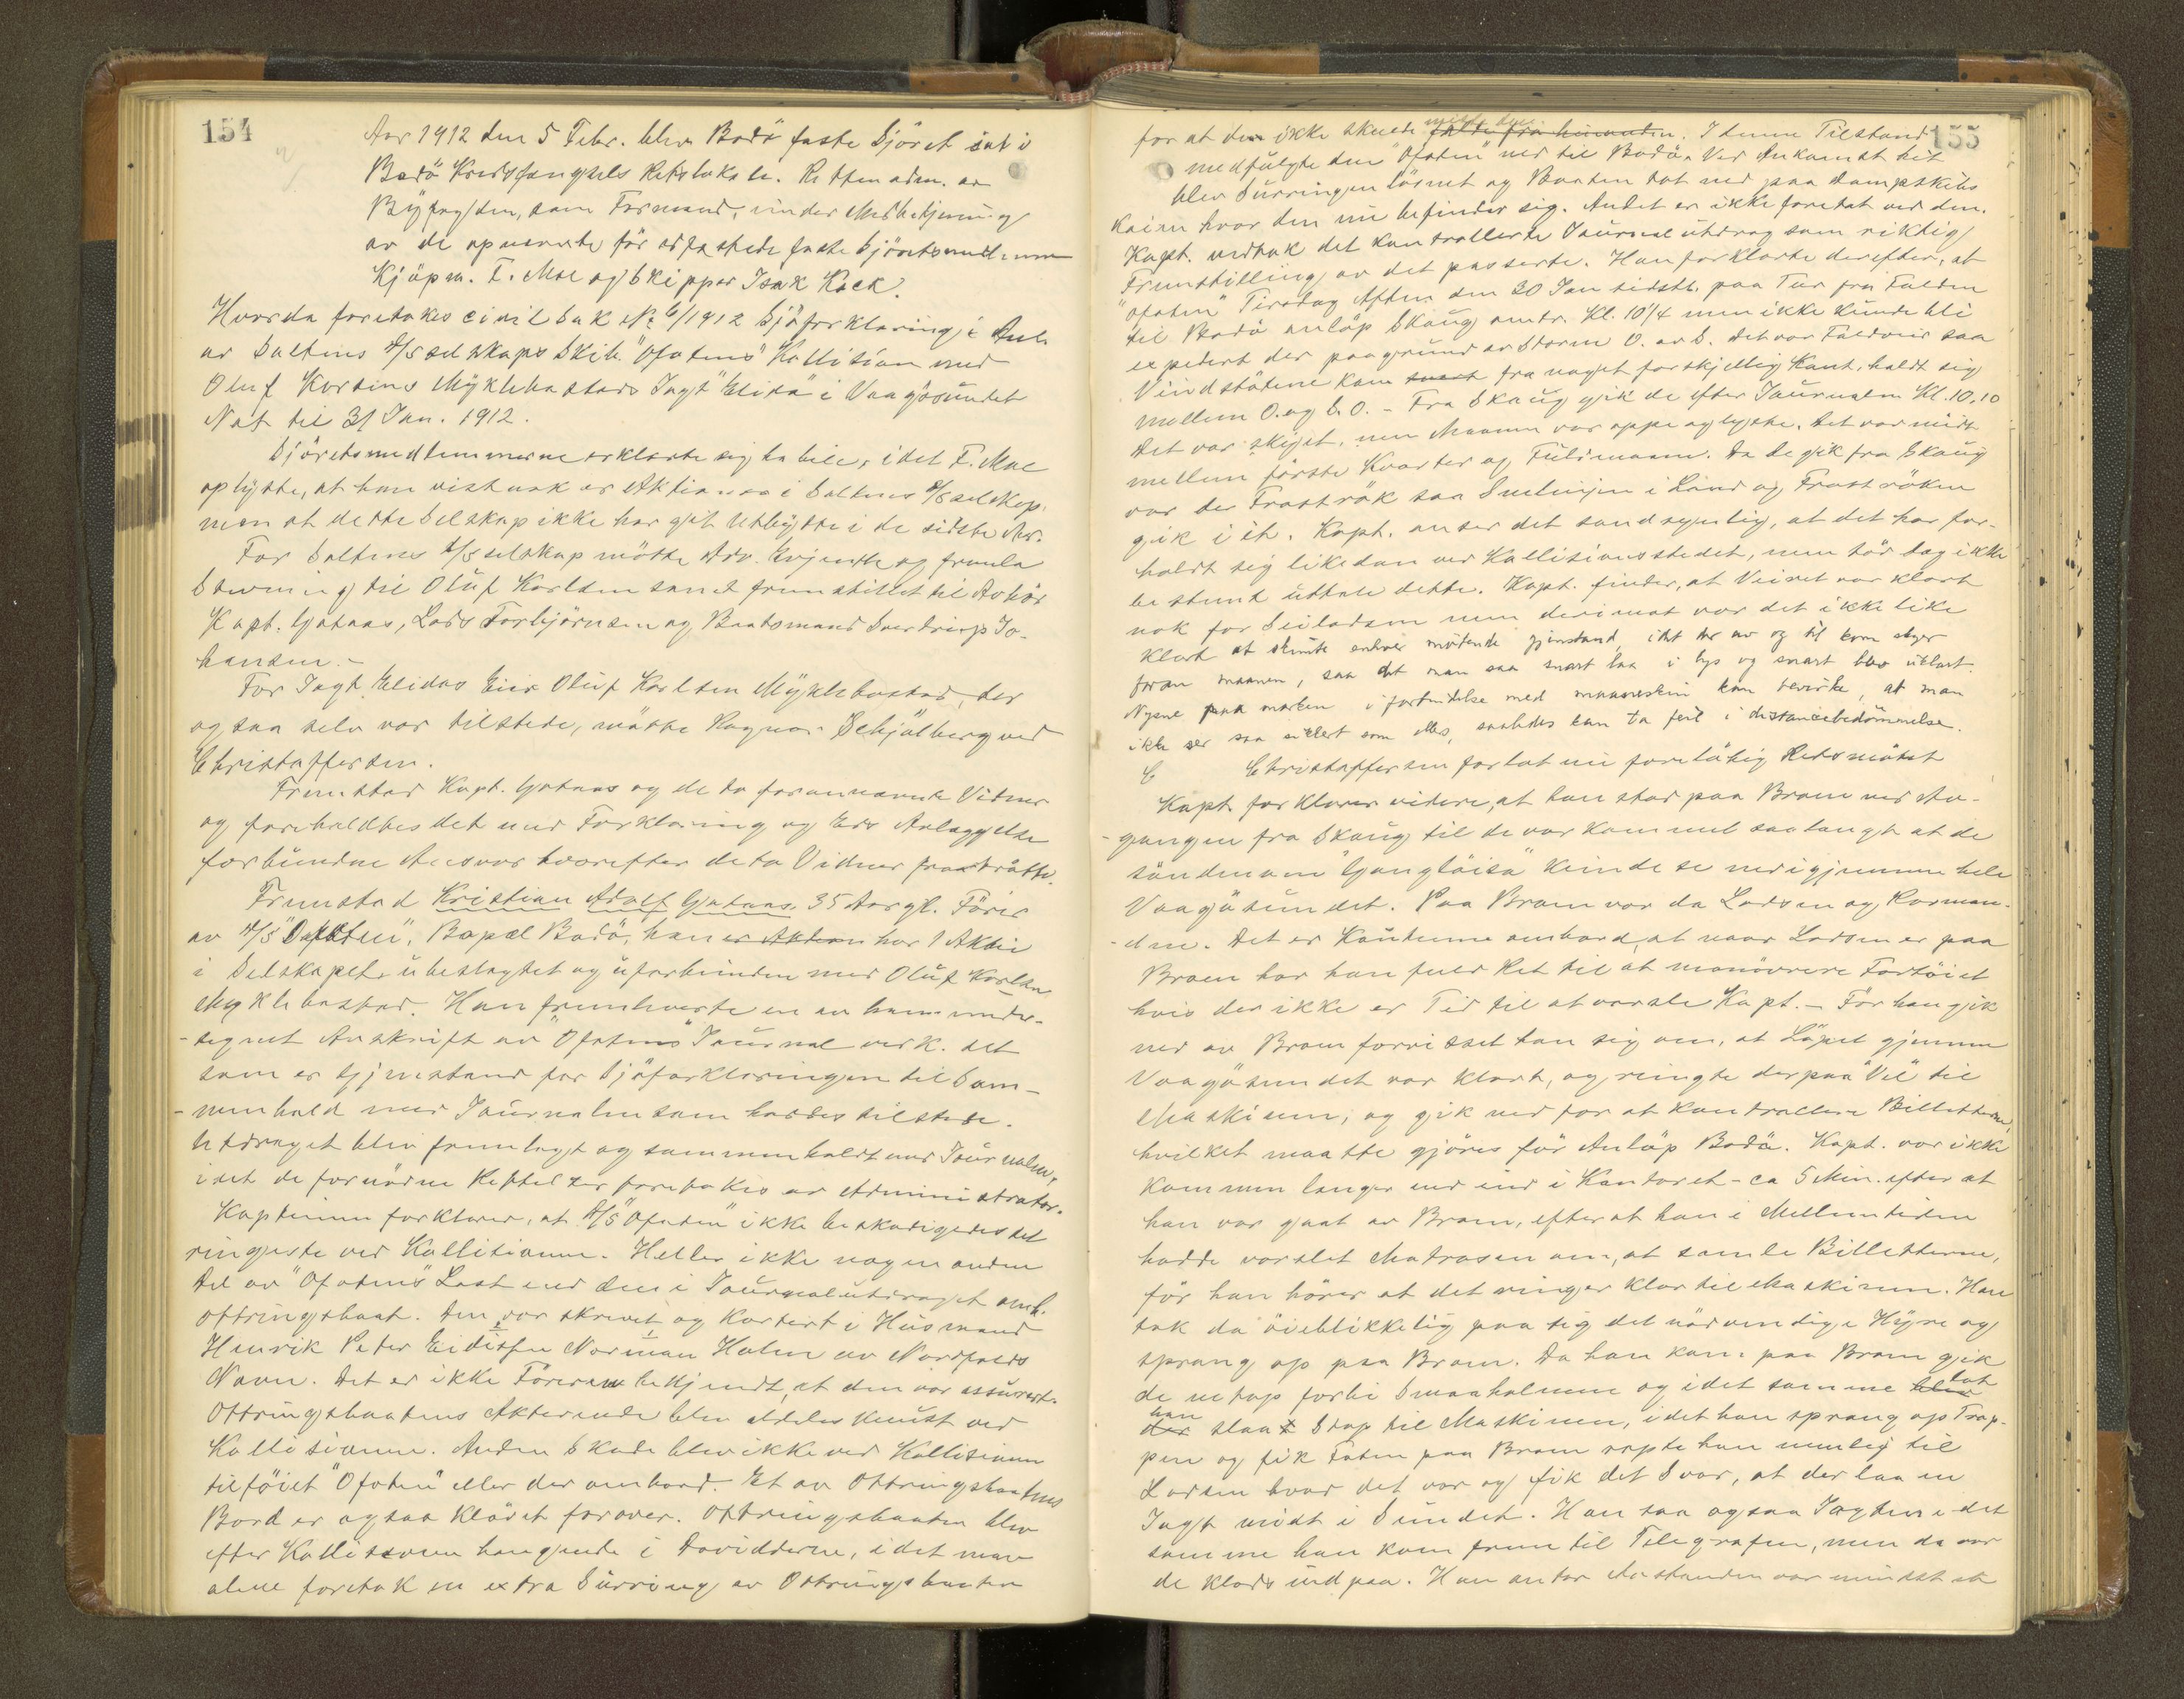 154
Aar 1912 den 5 Febr. blev Bodö faste Sjöret sat i
Bodö Kredsfængsels Retslokale. Retten adm. av
Byfogden, som Formand, under Medbetjening
av de opnævnte før edfæstede faste Sjöretsmedlemmer
Kjöpm. F. Moe og Skipper Isak Koek.
Hvorda foretokes civil Sak No 6/1912 Sjöforklaring i Anl.
av Saltens D/S selskaps Skib "Ofotens" Kollision med
Oluf Korsens Myklebostads Jagt "Elida" i Vaagösundet
Nat til 31 Jan. 1912.
Sjöretsmedlemmerne erklærte sig habile, idet F. Moe
oplyste, at han vistnok er Aktionær i Saltens D/S selskap,
men at dette Selskap ikke har git Utbytte i de sidste Aar.
For Saltens D/S selskap mötte Adv. Evjenth og fremla
Stevning til Oluf Karlsen samt fremstillet til Avhör
Kapt. Gataas, Lods Torbjörnsen og Baatsmand Sverdrup Jo-
hansen.-
For Jagt Elidas Eier Oluf Karlsen Myklebostad, der
ogsaa selv var tilstede, mötte Ragnar Schjölberg ved
Christoffersen.
Fremstod Kapt. Gataas og de to forannævnte Vidner
og foreholdtes det med Forklaring og Eds Avlæggelse
forbundne Ansvar hvorefter de to Vidner fratraatte.
Fremstod Kristian Adolf Gataas, 35 Aar gl. Förer
av D/S "Ofoten", Bopæl Bodö, han er Aktion har 1 Aktie
i Selskapet, ubeslegtet og uforbunden med Oluf Karlsen
Myklebostad. Han fremleverte en av ham under-
-tegnet Avskrift av "Ofotens" Journal vedk. det
som er Gjenstand for Sjöforklaringen til Sam-
-menhold med Journalen som havdes tilstede.
Utdraget blev fremlagt og sammenholdt med Journalen,
idet de fornödne Rettelser foretokes av Administrator.
Kapteinen forklarer, at D/S "Ofoten" ikke beskadigedes det
ringeste ved Kollisionen. Heller ikke nogen anden
Del av "Ofotens" Last end den i Journalutdraget omh.
ottringsbaat. Den var skrevet og kartert i Husmand
Henrik Peter Eidissen Norman Holm av Nordfolds
Navn. Det er ikke Föreren bekjendt, at den var assurert.
Ottringsbaatens Akterende blev aldeles knust ved
Kollisionen. Anden Skade blev ikke ved Kollisionen
tilföiet "Ofoten" eller der ombord. Et av Ottringsbaatens
Bord er ogsaa klövet forover. Ottringsbaaten blev
efter Kollisionen hængende i Daviderne, idet man
alene foretok en extra Surring av Ottringsbaaten
155
for at den ikke skulde miste den falde fra hinanden. I denne Tilstand
medfulgte den "Ofoten" ned til Bodö. Ved Ankomst hit
blev Surringen lösnet og Baaten tat ned paa Dampskibs
kaien hvor den nu befinder sig. Andet er ikke foretat ved den.
Kapt. vedtok det kontrollerte Journalutdrag som riktig
Fremstilling av det passerte. Han forklarte derefter, at
"Ofoten" Tirsdag Aften den 30 Jan sidstl. paa Tur fra Folden
til Bodö anlöp Skaug omtr. Kl. 10 1/4 men ikke kunde bli
expedert der paagrund av Storm O. av S. Det var Faldveir saa
Vindstötene kom snart fra noget forskjellig Kant, holdt sig
mellem O. og S.O. - Fra Skaug gik de efter Journalen Kl. 10.10
Det var skyet, men Maanen var oppe og lyste. Det var midt
mellem förste Kvarter og Fuldmaane. Da de gik fra Skaug
var der Froströk saa Snelinjen i Land og Froströken
gik i ét. Kapt. anser det sandsynlig, at det har for-
holdt sig likedan ved Kollisionsstedet, men tör dog ikke
bestemt uttale dette. Kapt. finder, at Veiret var klart
nok for Seiladsen men derimot var det ikke like
klart at skimte enhver mötende gjenstand, idet der av og til kom skyer
foran maanen, saa at man saa snart laa i lys og snart blev uklart.
Nysne paa marken i forbindelse med maaneskin kan bevirke, at man
ikke ser saa sikkert som ellers, saaledes kan ta feil i distancebedömmelse.
C Christoffersen forlot nu forelöbig Retsmötet
Kapt. forklarer videre, at han stod paa Broen ved Av-
-gangen fra Skaug til de var kommet saa langt at de
söndenom "Gangtöisa" kunde se ned igjennem hele
Vaagösundet. Paa Broen var da Lodsen og Rorman-
-den. Det er Kutyme ombord, at naar Lodsen er paa
Broen har han fuld Ret til at manövrere Fartöiet
hvis der ikke er Tid til at varsle Kapt. - Før han gik
ned av Broen forvisset han sig om, at Löpet gjennem
Vaagösundet var klart, og ringte derpaa "Vel" til
Maskinen, og gik ned for at kontrollere Billetterne,
hvilket maatte gjöres för Anlöp Bodö. Kapt. var ikke
kommen længer end ind i Kontoret - ca 5 Min. efter at
han var gaat av Broen, efterat han i Mellemtiden
hadde varslet Matrosen om, at samle Billetterne,
för han hörer at det ringer klar til Maskinen. Han
tok da öieblikkelig paa sig det nödvendige Hyre og
sprang op paa Broen. Da han kom paa Broen gik
de netop forbi Smaaholmene og idet samme blev lot
der han slaa t Stop til Maskinen, idet han sprang op Trap-
pen og fik Foten paa Broen ropte han nemlig til
Lodsen hvad det var og fik det Svar, at der laa en
Jagt midt i Sundet. Han saa ogsaa Jagten i det
samme han kom frem til Telegrafen, men da var
de klods ind paa. Han antar Avstanden var mindst et